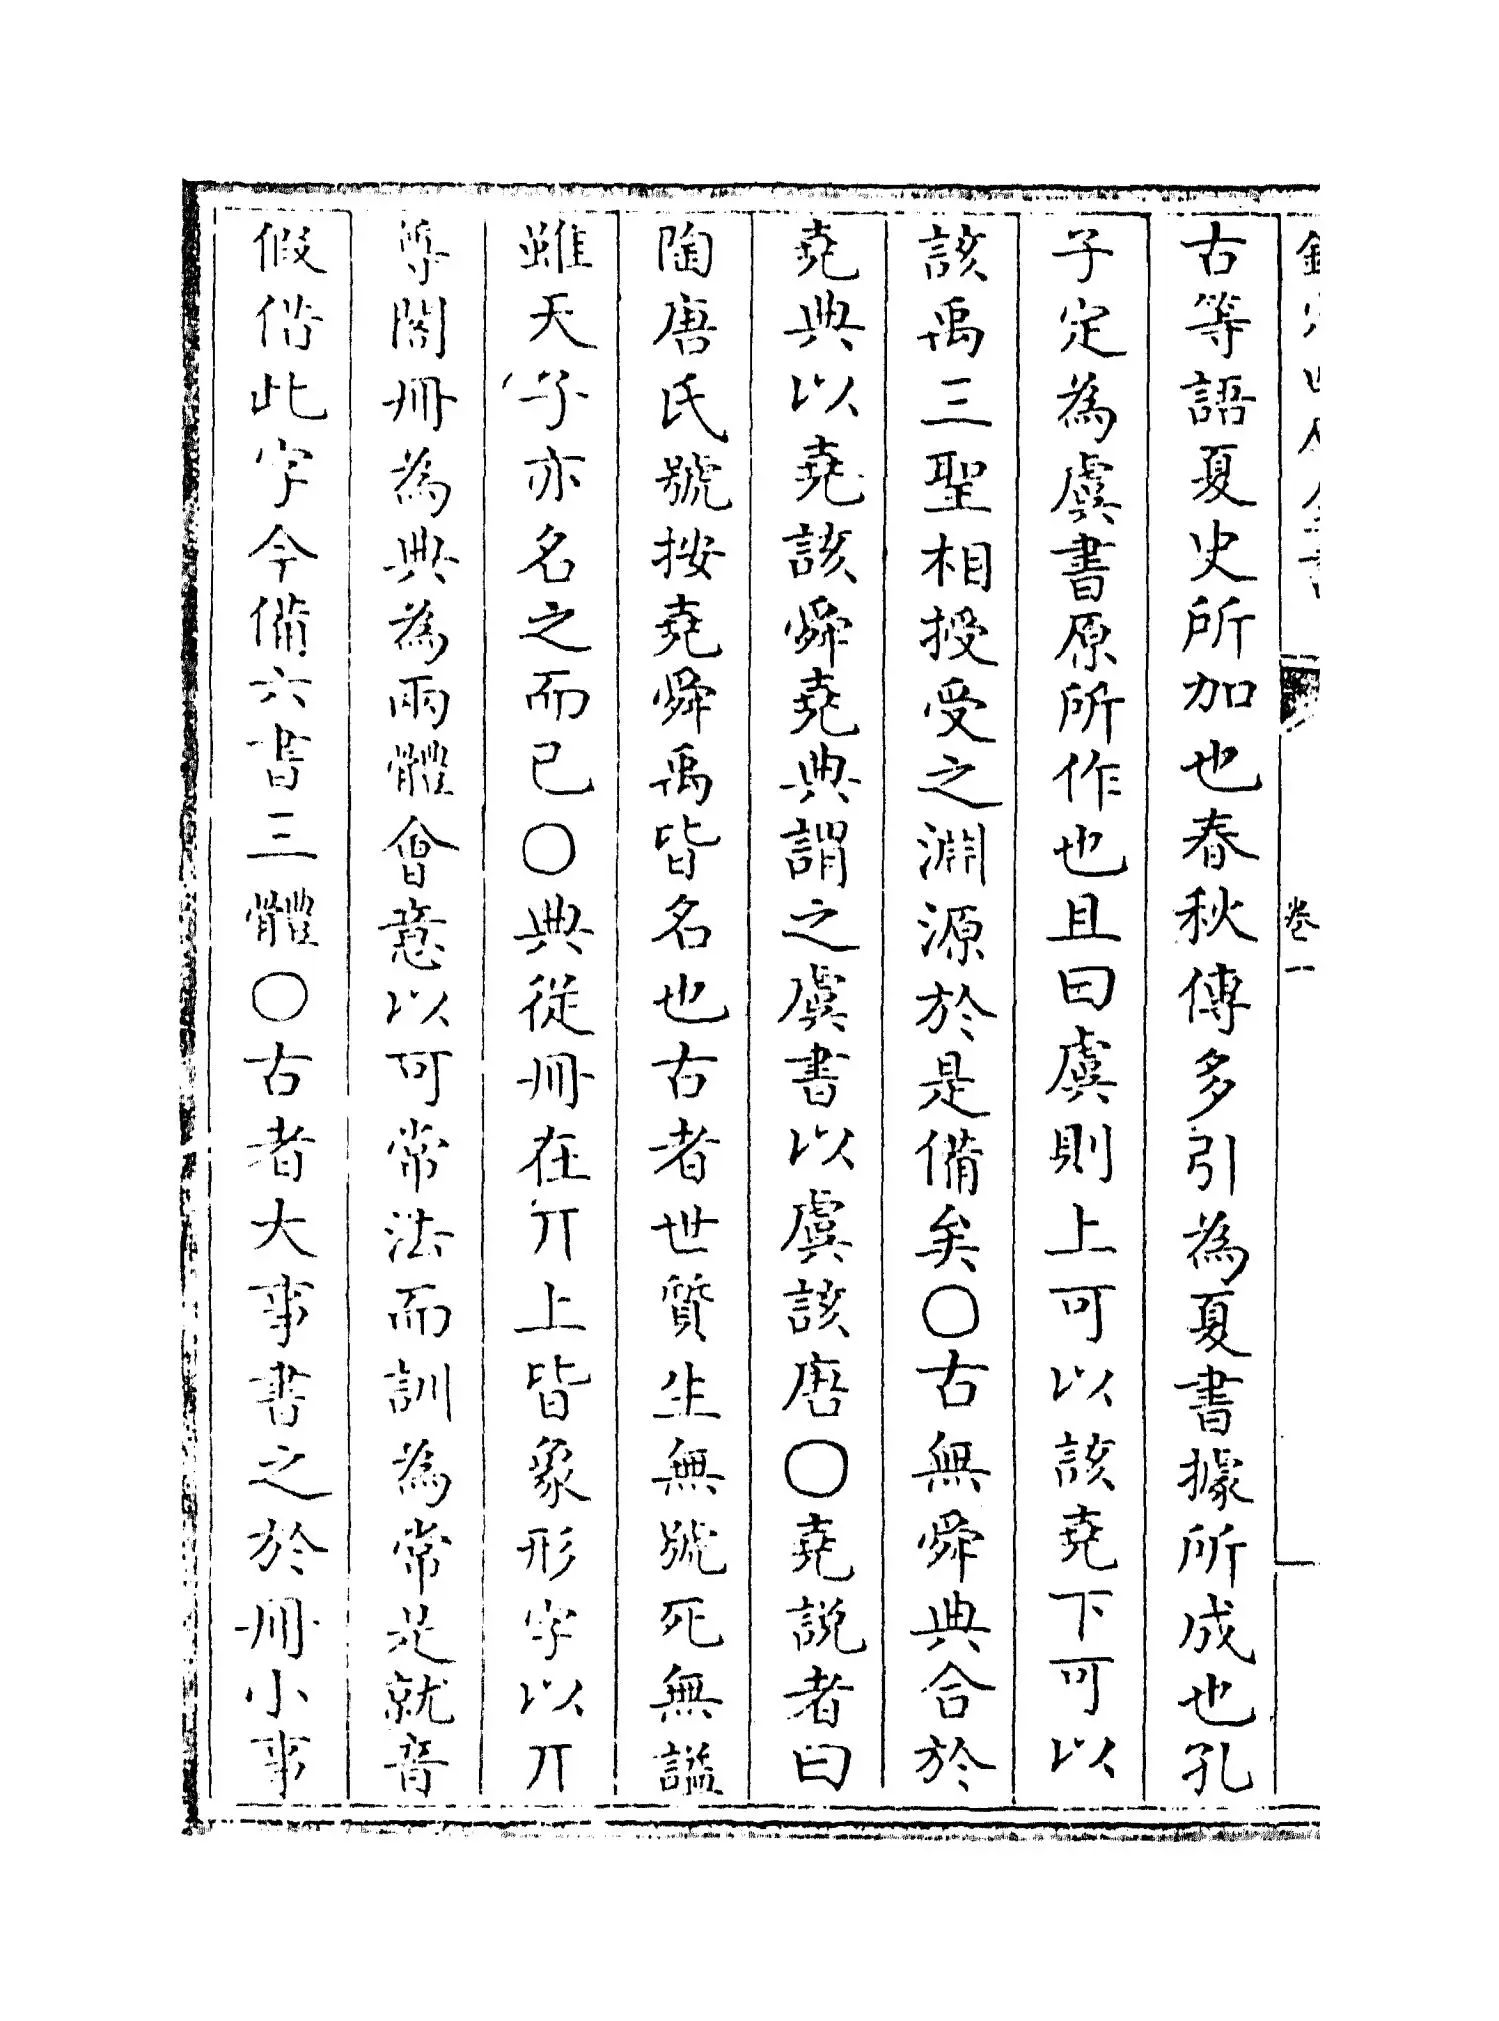 卷一
古等語夏史所加也春秋傳多引為夏書據所成也孔
子定為虞書原所作也且曰虞則上可以該堯下可以
該禹三聖相授受之淵源於是備矣○古無舜典合於
堯典以堯該舜堯典謂之虞書以虞該唐○堯説者曰
陶唐氏號按堯舜禹皆名也古者世質生無號死無謚
雖天子亦名之而已○典從冊在丌上皆象形字以丌
尊閣冊為典為兩體會意以可常法而訓為常是就音
假借此字今備六書三體○古者大事書之於冊小事